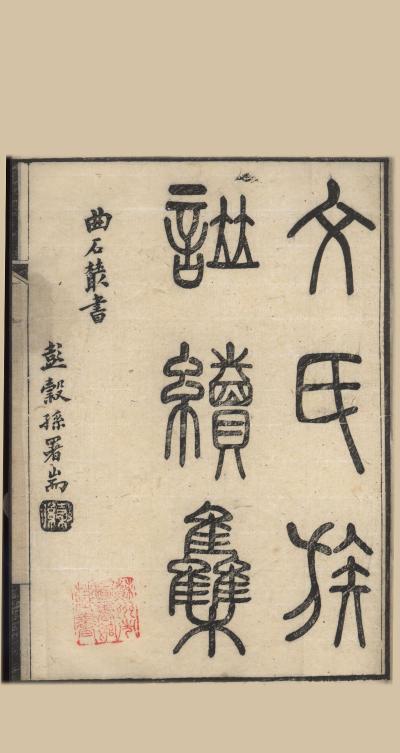 文氏族
譜續雧
曲石叢書
彭穀孫署耑